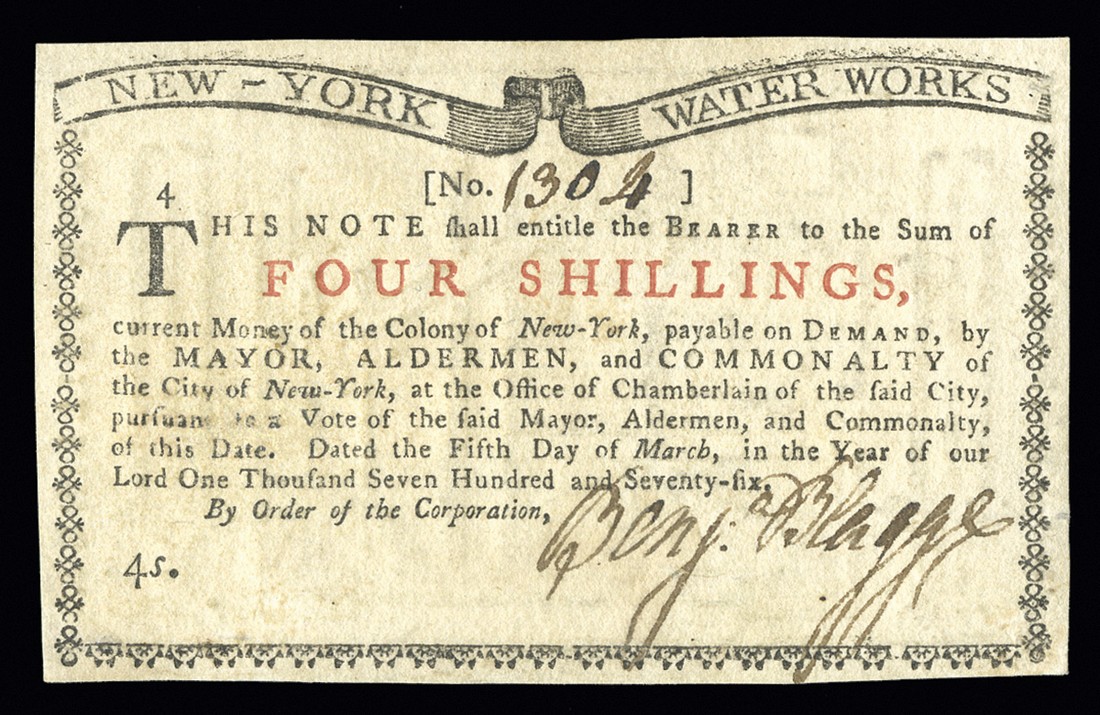 NEW-YORK WATER WORKS
[No. 1304 ]
4
THIS NOTE ſhall entitle the BEARER to the Sum of
FOUR SHILLINGS,
current Money of the Colony of New-York, payable on DEMAND, by
the MAYOR, ALDERMEN, and COMMONALTY of
the City of New-York, at the Office of Chamberlain of the ſaid City,
purſuant to a Vote of the ſaid Mayor, Aldermen, and Commonalty,
of this Date. Dated the Fifth Day of March, in the Year of our
Lord One Thouſand Seven Hundred and Seventy-ſix.
By Order of the Corporation,
Benj.ª Blagge
4s.